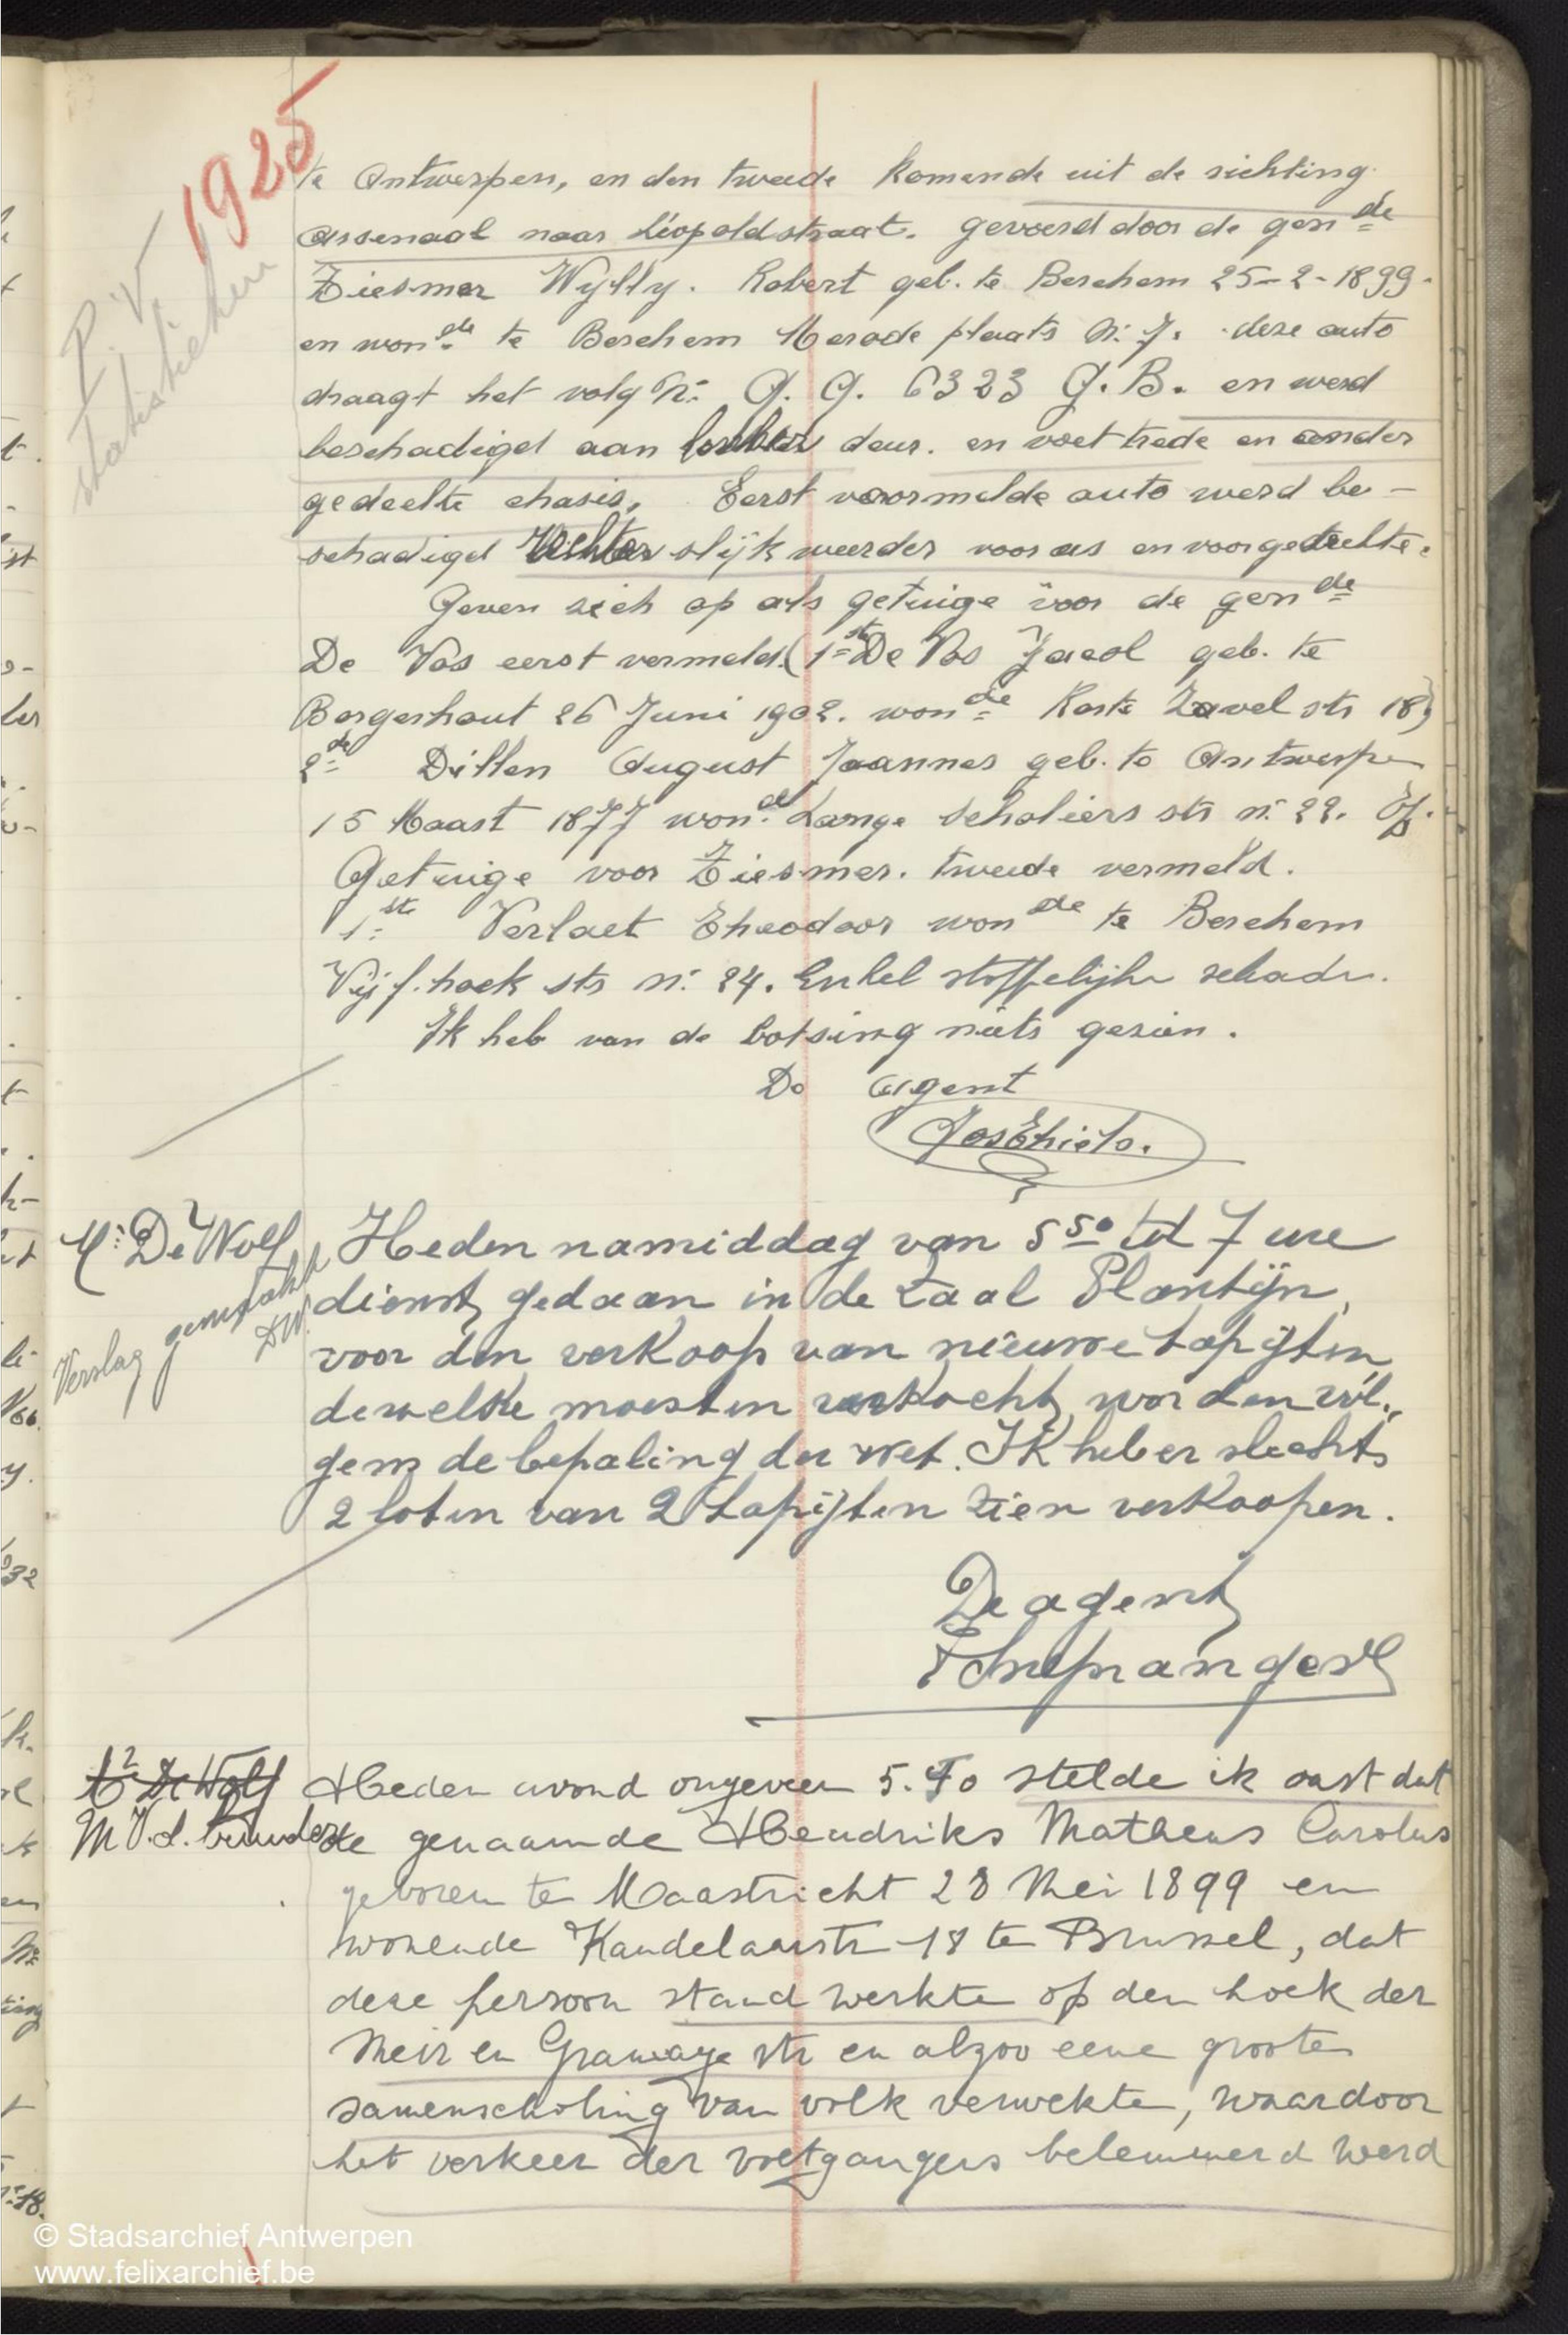 1925
P.V.
statistieken
te Antwerpen, en den tweede komende uit de richting
Arsenaal naar Léopoldstraat. gevoerd door de gen de
Ziesmer Wylly. Robert geb. te Berchem 25-2-1899.
en won de te Berchem Merode plaats N: 7. deze auto
draagt het volg N: G. G. 6323 G. B. en werd
beschadigd aan deur. en voettrede en onder
gedeelte chasis, Eerst voormelde auto werd be-
schadigd Rechter slijkweerder vooras en voorgedeelte.
Geven sich op als getuige voor de gen de
De Vos eerst vermeld. (1ste De Vos Jacob geb. te
Borgerhout 26 Juni 1902. won de Korte Zavel str 18)
2de Dillen August Joannes geb. te Antwerpen
15 Maart 1877 won.de Lange Scholiers str n: 22.
Getuige voor Ziesmer. tweede vermeld.
1ste Verlaet Theodoor won de te Berchem
Vijf.hoek str n: 24. Enkel stoffelijke schade.
Ik heb van de botsing niets gezien.
De agent
Jos Thielo.
Mr De Wolf
Verslag gemaakt
DW.
Heden namiddag van 5 50 tot 7 ure
dienst gedaan in de zaal Plantijn,
voor den verkoop van nieuwe tapijten
dewelke moesten verkocht worden vol,,
gens de bepaling der wet. Ik heb er slechts
2 loten van 2 tapijten zien verkoopen.
De agent
Mr De Wolf
M V.d.
Heden avond ongeveer 5.40 stelde ik vast dat
de genaamde Hendriks Matheus Carolus
geboren te Maastricht 28 Mei 1899 en
wonende Kandelaarstr 18 te Brussel, dat
deze persoon stand werkte op den hoek der
Meir en Gramaye str en alzoo eene groote
samenscholing van volk verwekte, waardoor
het verkeer der voetgangers belemmerd werd
© Stadsarchief Antwerpen
www.felixarchief.be